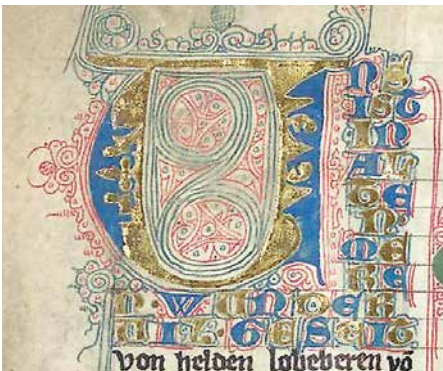 UNS
IST
IN
AL
TE
N
ME
RE
N WUNDER
UIL GESEIT
von helden lobeberen vō